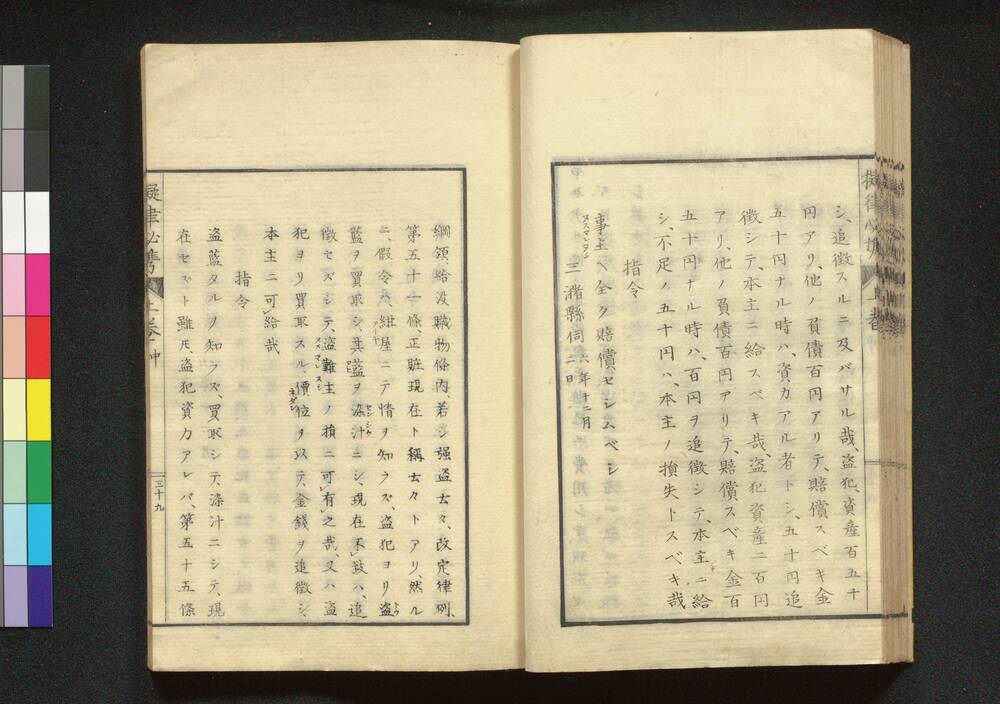 シ、追徴スルニ及バサル哉、盗犯、資産百五十
円アリ、他ノ負債百円アリテ、賠償スベキ金
五十円ナル時ハ、資力アル者トシ、五十円追
徴シテ、本主ニ給スベキ哉、盗犯資産二百円
アリ、他ノ負債百円アリテ、賠償スベキ金百
五十円ナル時ハ、百円ヲ追徴シテ、本主ニ給
シ、不足ノ五十円ハ、本主ノ損失トスベキ哉
指令
事主ヘ全ク賠償セシムベシ
ヌスマレヌシ
三潴縣伺 六年十二月二日
綱領、給没贓物條内、若シ強盗云々、改定律例、
第五十一條、正贓現在ト稱云々トアリ、然ル
ニ、假令ハ、紺屋ニテ情ヲ知ラズ、盗犯ヨリ盗
藍ヲ買取シ、其藍ヲ染汁ニシ、現在不致ハ、追
徴セズシテ、盗難主ノ損ニ可有之哉、又ハ盗
犯ヨリ買取スル、價位ヲ以テ、金錢ヲ追徴シ、
本主ニ可給哉
指令
盗藍タルヲ知ラズ、買取シテ、染汁ニシテ、現
在セズト雖𪜈、盗犯資力アレバ、第五十五條
擬律必携 上巻
三十九